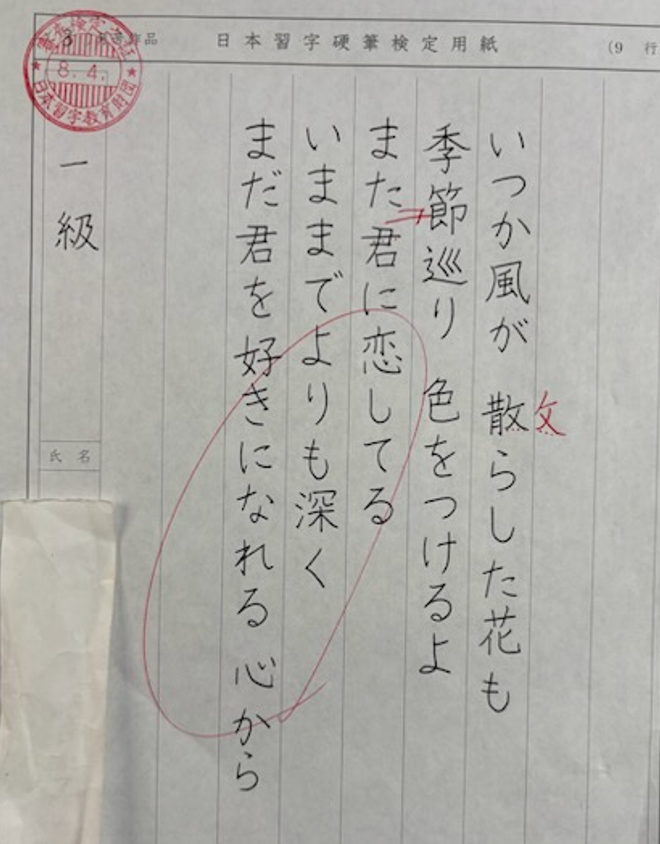 日本習字硬筆検定用紙
(9 行
いつか風が 散らした花も
攵
季節巡り 色をつけるよ
また君に恋してる
いままでよりも深く
まだ君を好きになれる 心から
一級
氏名
8.4.
日本習字教育財団